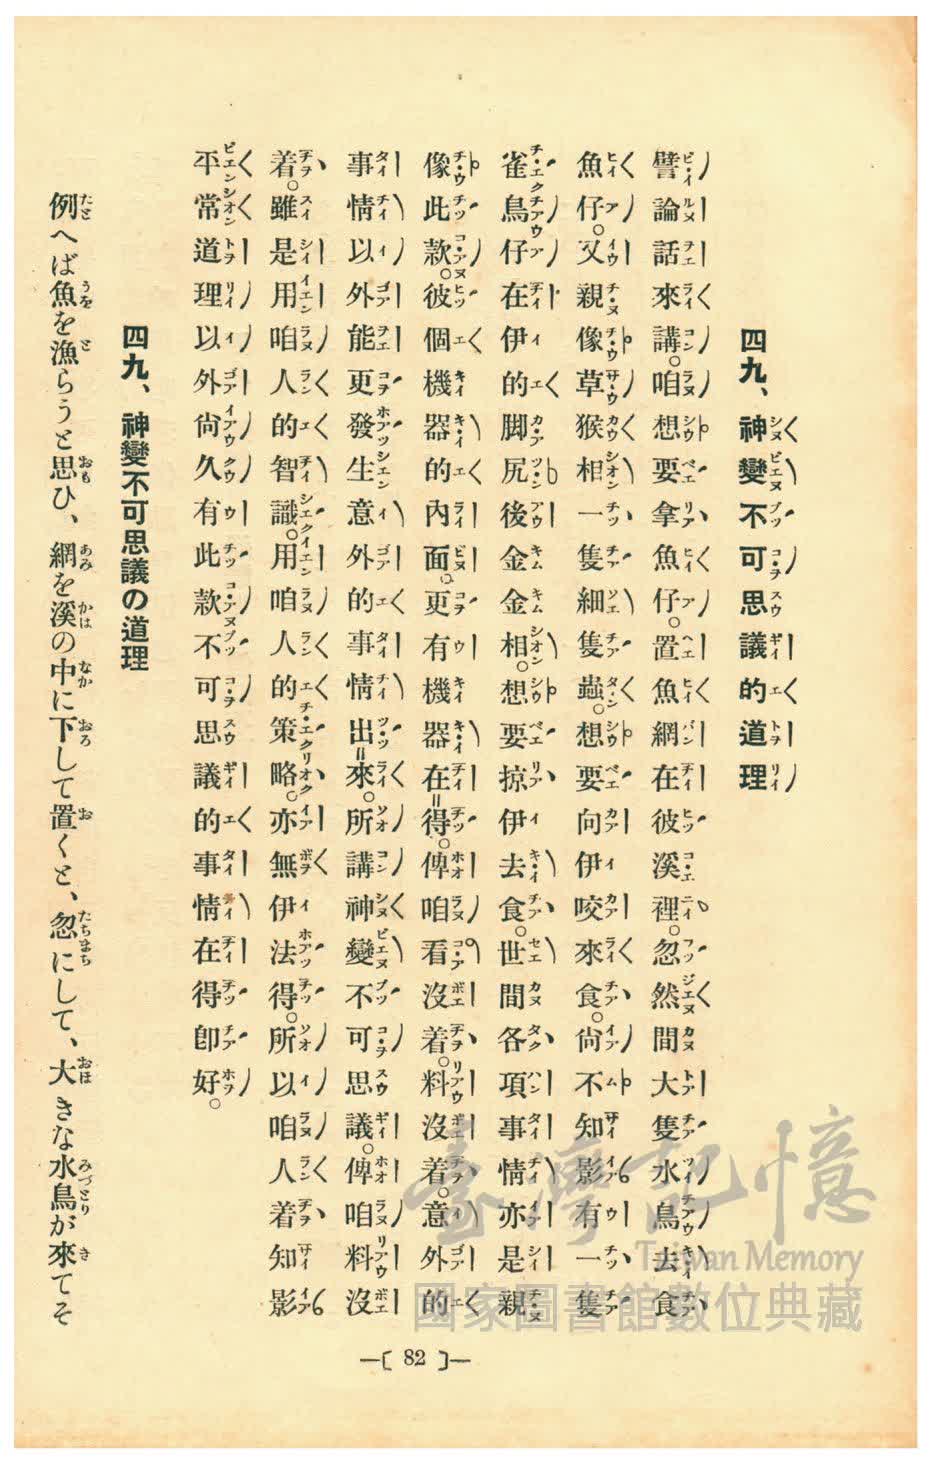 四九、神變不可思議的道理
譬論話來講。咱想要拿魚仔。置魚網在彼溪裡。忽然間大隻水鳥去食
魚仔。又親像草猴相一隻細隻蟲。想要向伊咬來食。尙不知影有一隻
雀鳥仔在伊的脚尻後金金相。想要掠伊去食。世間各項事情亦是親
像此款。彼個機器的內面。更有機器在=得。俾咱看沒着。料沒着。意外的
事情以外能更發生意外的事情出=來。所講神變不可思議。俾咱料沒
着。雖是用咱人的智識。用咱人的策略。亦無伊法得。所以咱人着知影
平常道理以外尙久有此款不可思議的事情在得卽好。
四九、神變不可思議の道理
例へば魚を漁らうと思ひ、網を溪の中に下して置くと、忽にして、大きな水鳥が來てそ
—〔 82 〕—
臺灣記憶
Taiwan Memory
國家圖書館數位典藏